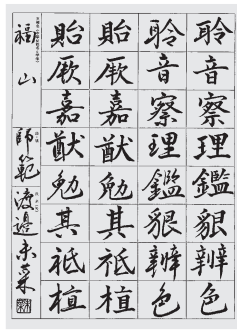 聆音察理鑑貌辨色
聆音察理鑑貌辨色
貽厥嘉猷勉其祗植
貽厥嘉猷勉其祗植
福山 師範 渡邊